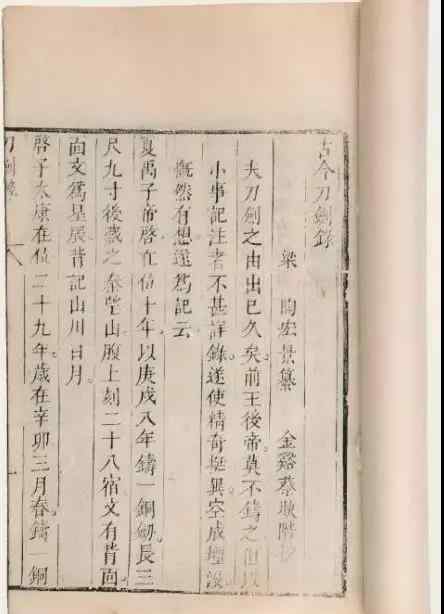 古今刀劍錄
梁 陶宏景纂 金谿蔡
夫刀劍之由出已久矣。前王後帝莫不鑄之。但以
小事記注者不甚詳錄。遂使精奇挺異。空成湮沒
慨然有想遂爲記云
夏禹子帝啓在位十年。以庚戌八年鑄一銅劒。長三
尺九寸後藏之秦望山。腹上刻二十八宿文有背面
面文爲星辰。背記山川日月。
啓子太康在位二十九年。歲在辛卯三月春。鑄一銅
刀劍錄 一